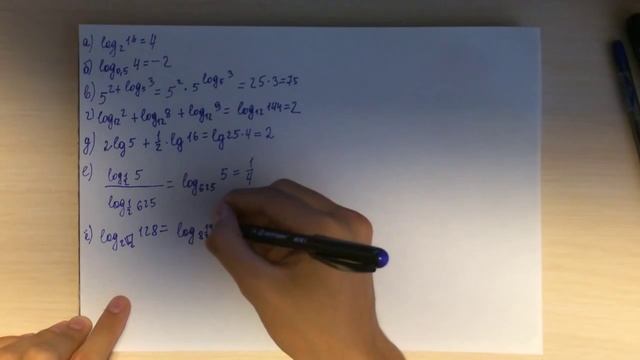 а) log₂16 = 4
б) log₀,₅4 = -2
в) 5^(2+log₅3) = 5² · 5^(log₅3) = 25·3 = 75
г) log₁₂2 + log₁₂8 + log₁₂9 = log₁₂144 = 2
д) 2lg5 + 1/2 · lg16 = lg25·4 = 2
е) log_(1/2)5 / log_(1/2)625 = log₆₂₅5 = 1/4
ё) log_(2√2)128 = log